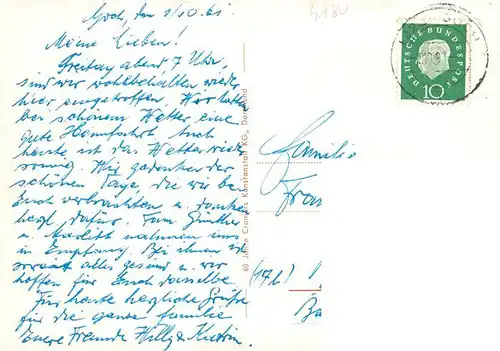 Goch, den 1/10.61.
Meine Lieben!
Freitag abend 7 Uhr,
sind wir wohlbehalten wieder
hier eingetroffen. Wir hatten
bei schönem Wetter eine
gute Heimfahrt. Auch
heute ist das Wetter wieder
sonnig. Wir gedenken der
schönen Tage, die wir bei
Euch verbrachten u. danken
herzl. dafür. Fam. Günther
u. nahmen uns
in Empfang. Bei ihnen ist
soweit alles gesund u. wir
hoffen für Euch dasselbe
Für heute herzliche Grüße
für die ganze Familie
Eure Freunde Willy &
60 Jahre Cramers Kunstanstalt KG., Dortmund
DEUTSCHE BUNDESPOST
10
Familie
Fran
(17b)